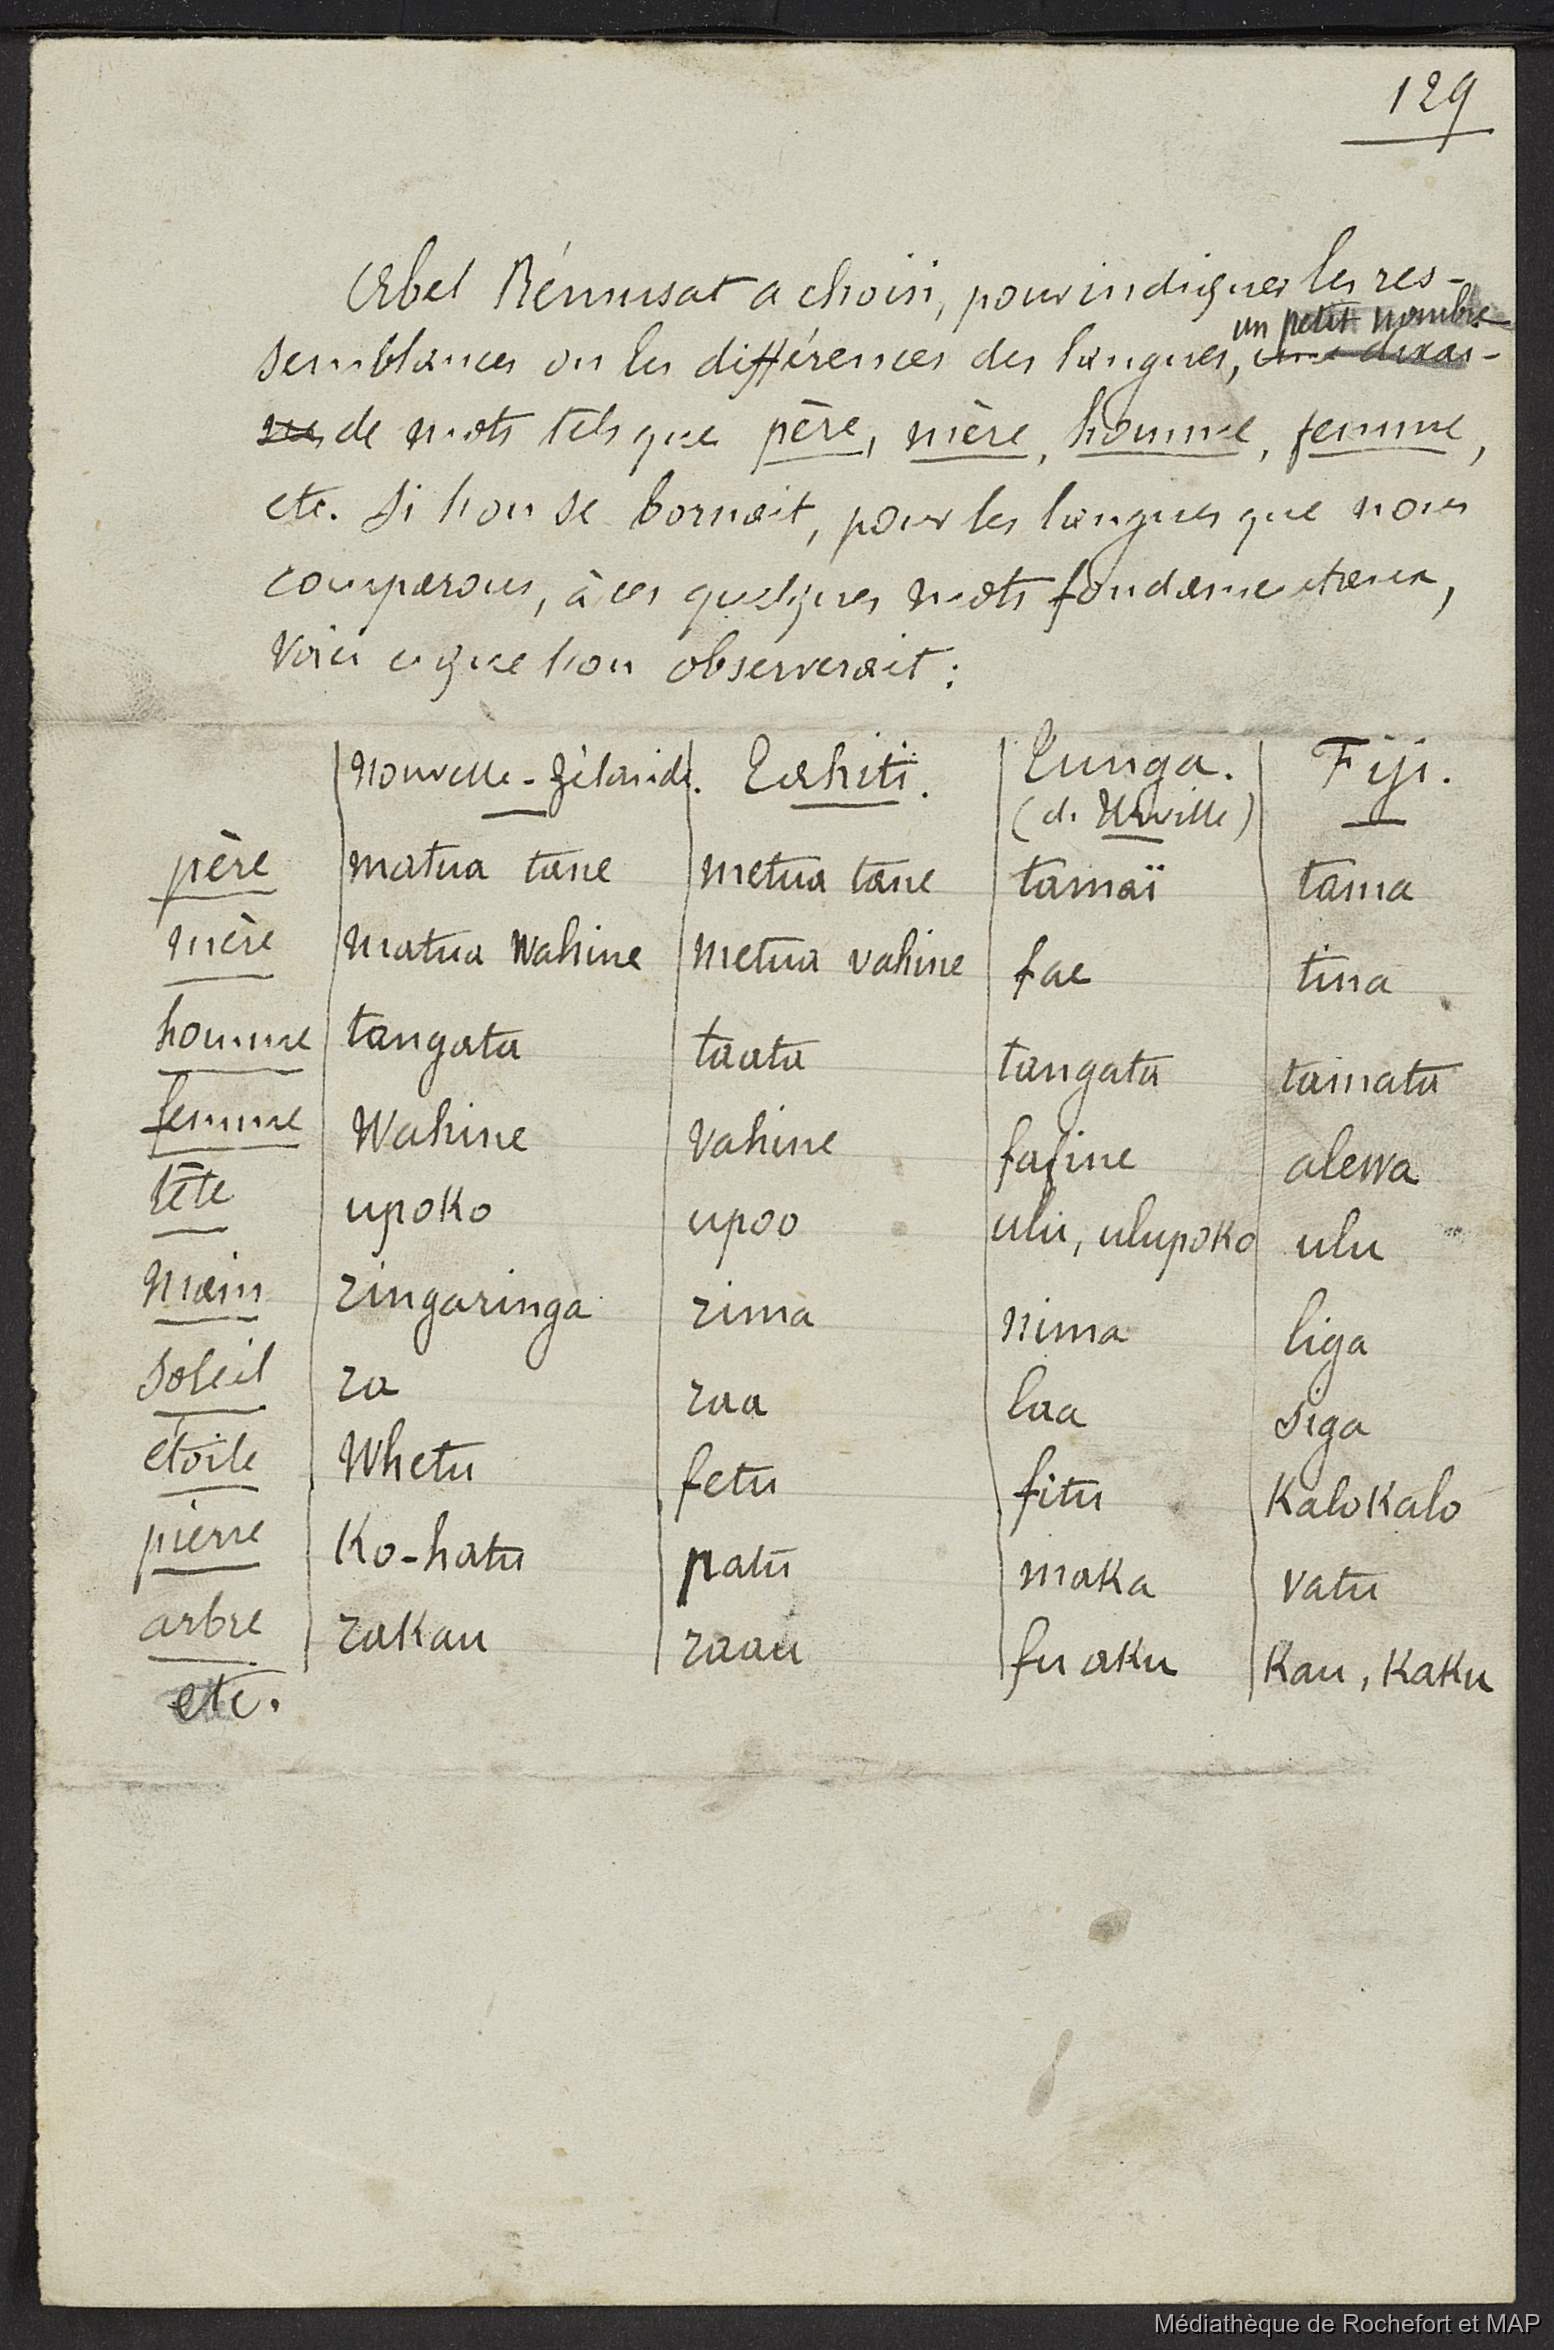 129
Abel Rémusat a choisi, pour indiquer les res-
un petit nombre
semblances ou les différences des langues,
de mots tels que père, mère, homme, femme,
etc. Si l'on se bornait, pour les langues que nous
comparons, à ces quelques mots fondamentaux,
voici ce que l'on observerait :
Nouvelle-Zélande. Tahiti. Tunga. Fiji.
(d'Urville)
père matua tane metua tane tamaï tama
mère matua wahine metua vahine fae tina
homme tangata taata tangata tamata
femme wahine vahine fafine alewa
tête upoko upoo ulu, ulupoko ulu
main ringaringa rima nima liga
soleil ra raa laa siga
étoile whetu fetu fitu kalokalo
pierre ko-hatu patu maka vatu
arbre rakau raau fu aku kau, kaku
etc.
Médiathèque de Rochefort et MAP